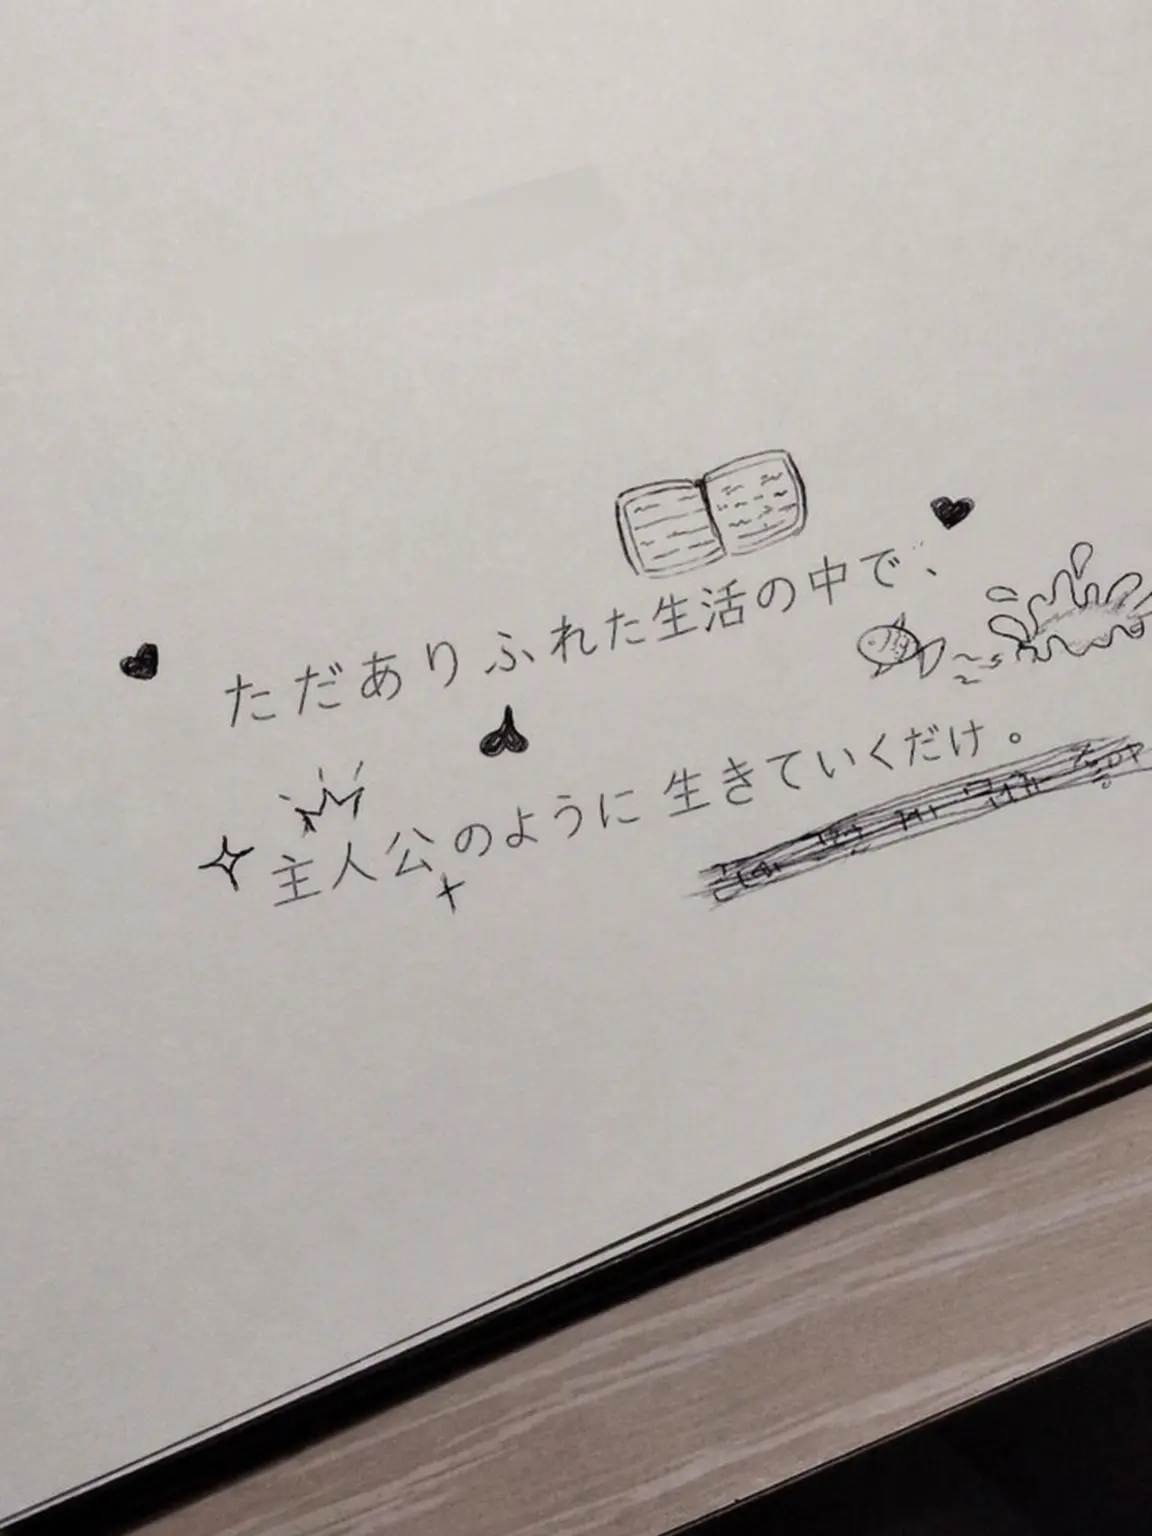 ただありふれた生活の中で、
主人公のように生きていくだけ。